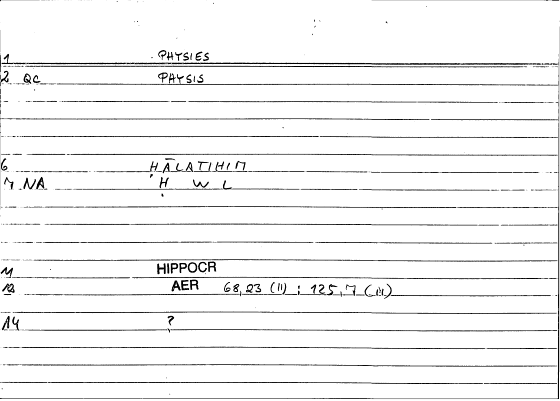 1 PHYSIES
2 QC PHYSIS
6 ḤĀLATIHIM
7 NA Ḥ W L
11 HIPPOCR
12 AER 68,23 (111) : 125,7 (14)
14 ?